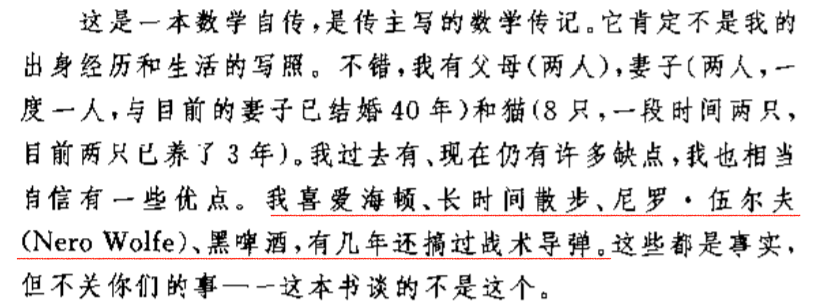 这是一本数学自传,是传主写的数学传记。它肯定不是我的
出身经历和生活的写照。不错,我有父母(两人),妻子(两人,一
度一人,与目前的妻子已结婚40年)和猫(8只,一段时间两只,
目前两只已养了3年)。我过去有、现在仍有许多缺点,我也相当
自信有一些优点。我喜爱海顿、长时间散步、尼罗·伍尔夫
(Nero Wolfe)、黑啤酒,有几年还搞过战术导弹。这些都是事实,
但不关你们的事——这本书谈的不是这个。